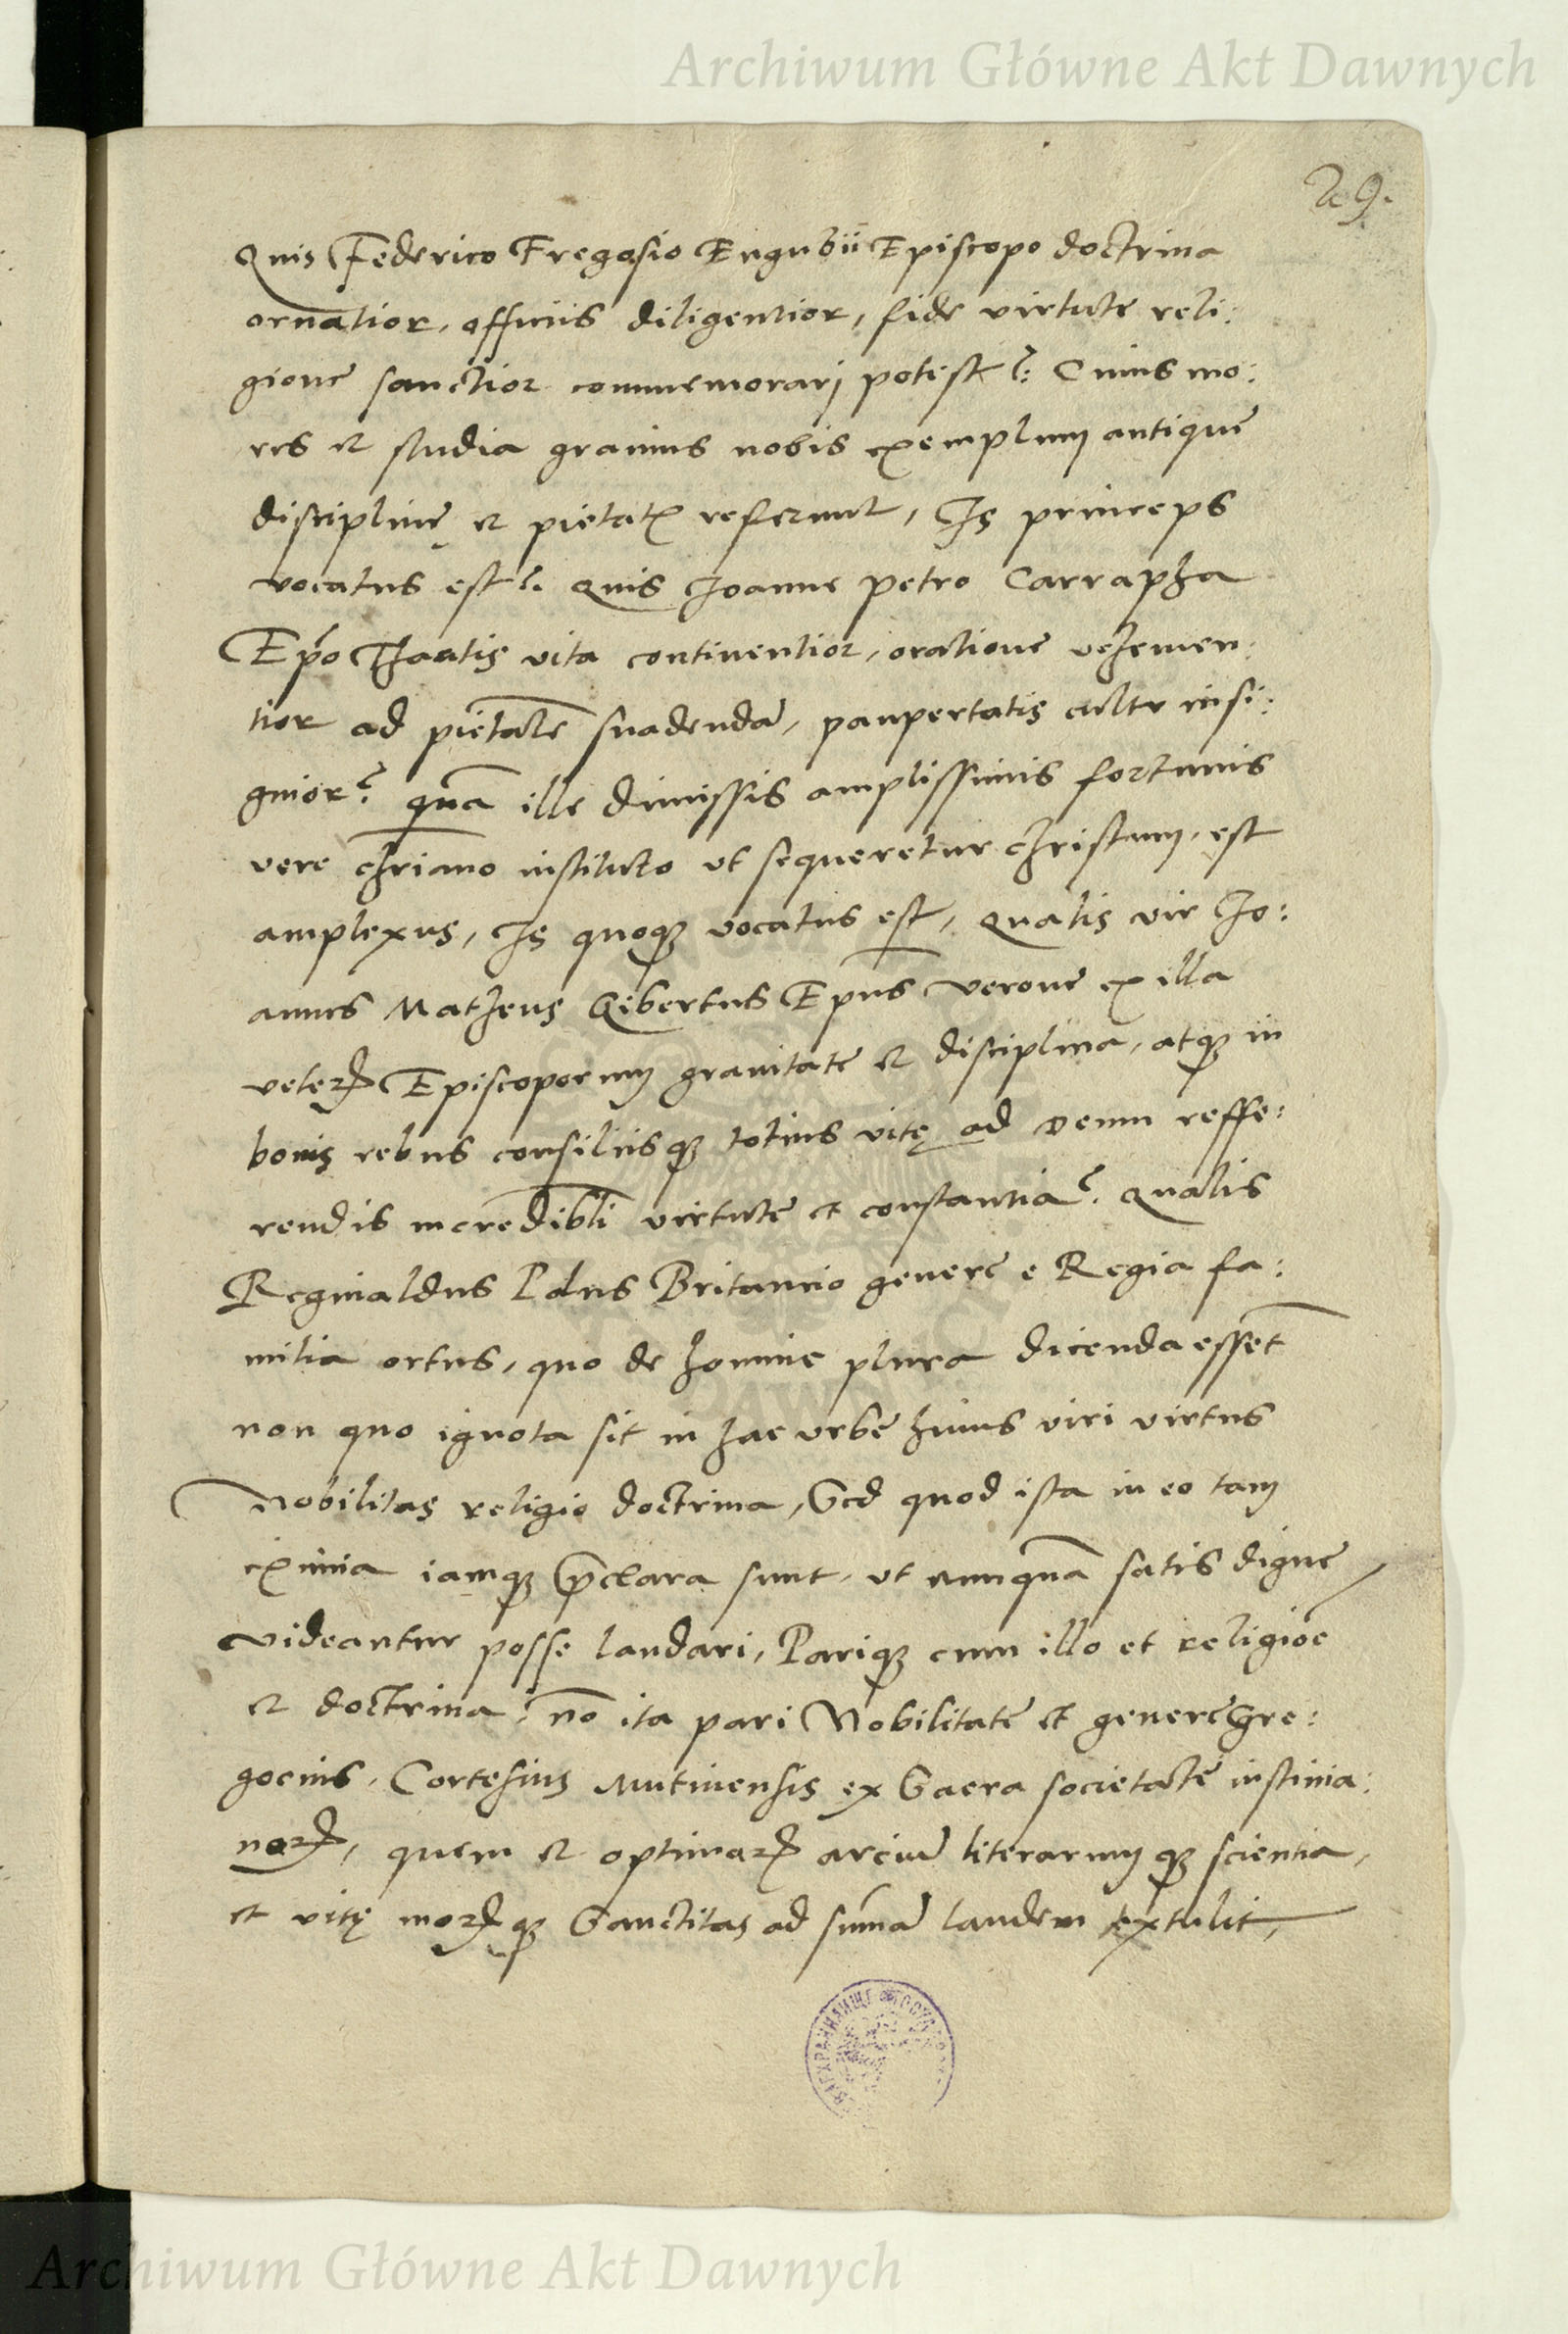 Archiwum Główne Akt Dawnych
29.
Quis Federico Fregosio Eugubii Episcopo doctrina
ornatior, officiis diligentior, fide virtute reli:
gione sanctior commemorari potest? Cuius mo:
res et studia gravius nobis exemplum antique
discipline et pietatis referunt, Is princeps
vocatus est. Quis Joanne Petro Carrapha
Epo Theatis vita continentior, oratione vehemen:
tior ad pietate suadenda, paupertatis cultu insi:
gnior? qua ille dimissis amplissimis fortunis
vere christiano instituto ut sequeretur christum, est
amplexus, Is quoque vocatus est, Qualis vir Jo:
annes Matheus Gibertus Epus Verone ex illa
veterum Episcoporum gravitate et disciplina, atque in
bonis rebus consiliisque totius vitę ad Deum reffe:
rendis incredibli virtute et constantia? Qualis
Reginaldus Polus Britannio genere e Regia fa:
milia ortus, quo de homine plura dicenda essent
non quo ignota sit in hac urbe huius viri virtus
Nobilitas religio doctrina, Sed quod ista in eo tam
eximia iamque preclara sunt, ut nunqua satis digne
videantur posse laudari, Parique cum illo et religioe
et doctrina, no ita pari Nobilitate et genere Gre:
gorius, Cortesius Mutinensis ex Sacra societate iustinia:
norum, quem et optimarum arcium literarumque scientia,
et vitę morumque Sanctitas ad summa laudem extulit,
Archiwum Główne Akt Dawnych